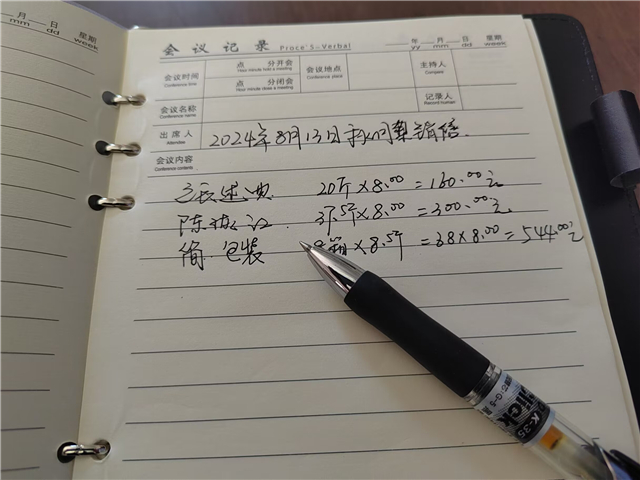 月 日 星期
mm dd week
会议记录 Proce's-Verbal
年 月 日 星期
yy mm dd week
会议时间 点 分开会
Conference time Hour minute hold a meeting
点 分闭会
Hour minute close a meeting
会议地点
Conference place
主持人
Compere
会议名称
Conference name
记录人
Record human
出席人 2024年8月13日
Attendee
会议内容
Conference contents
20斤×8.00=160.00元
陈 37.5斤×8.00=300.00元
简包装 箱×8.5斤=68×8.00=544.00元
Click
K-35
G-5